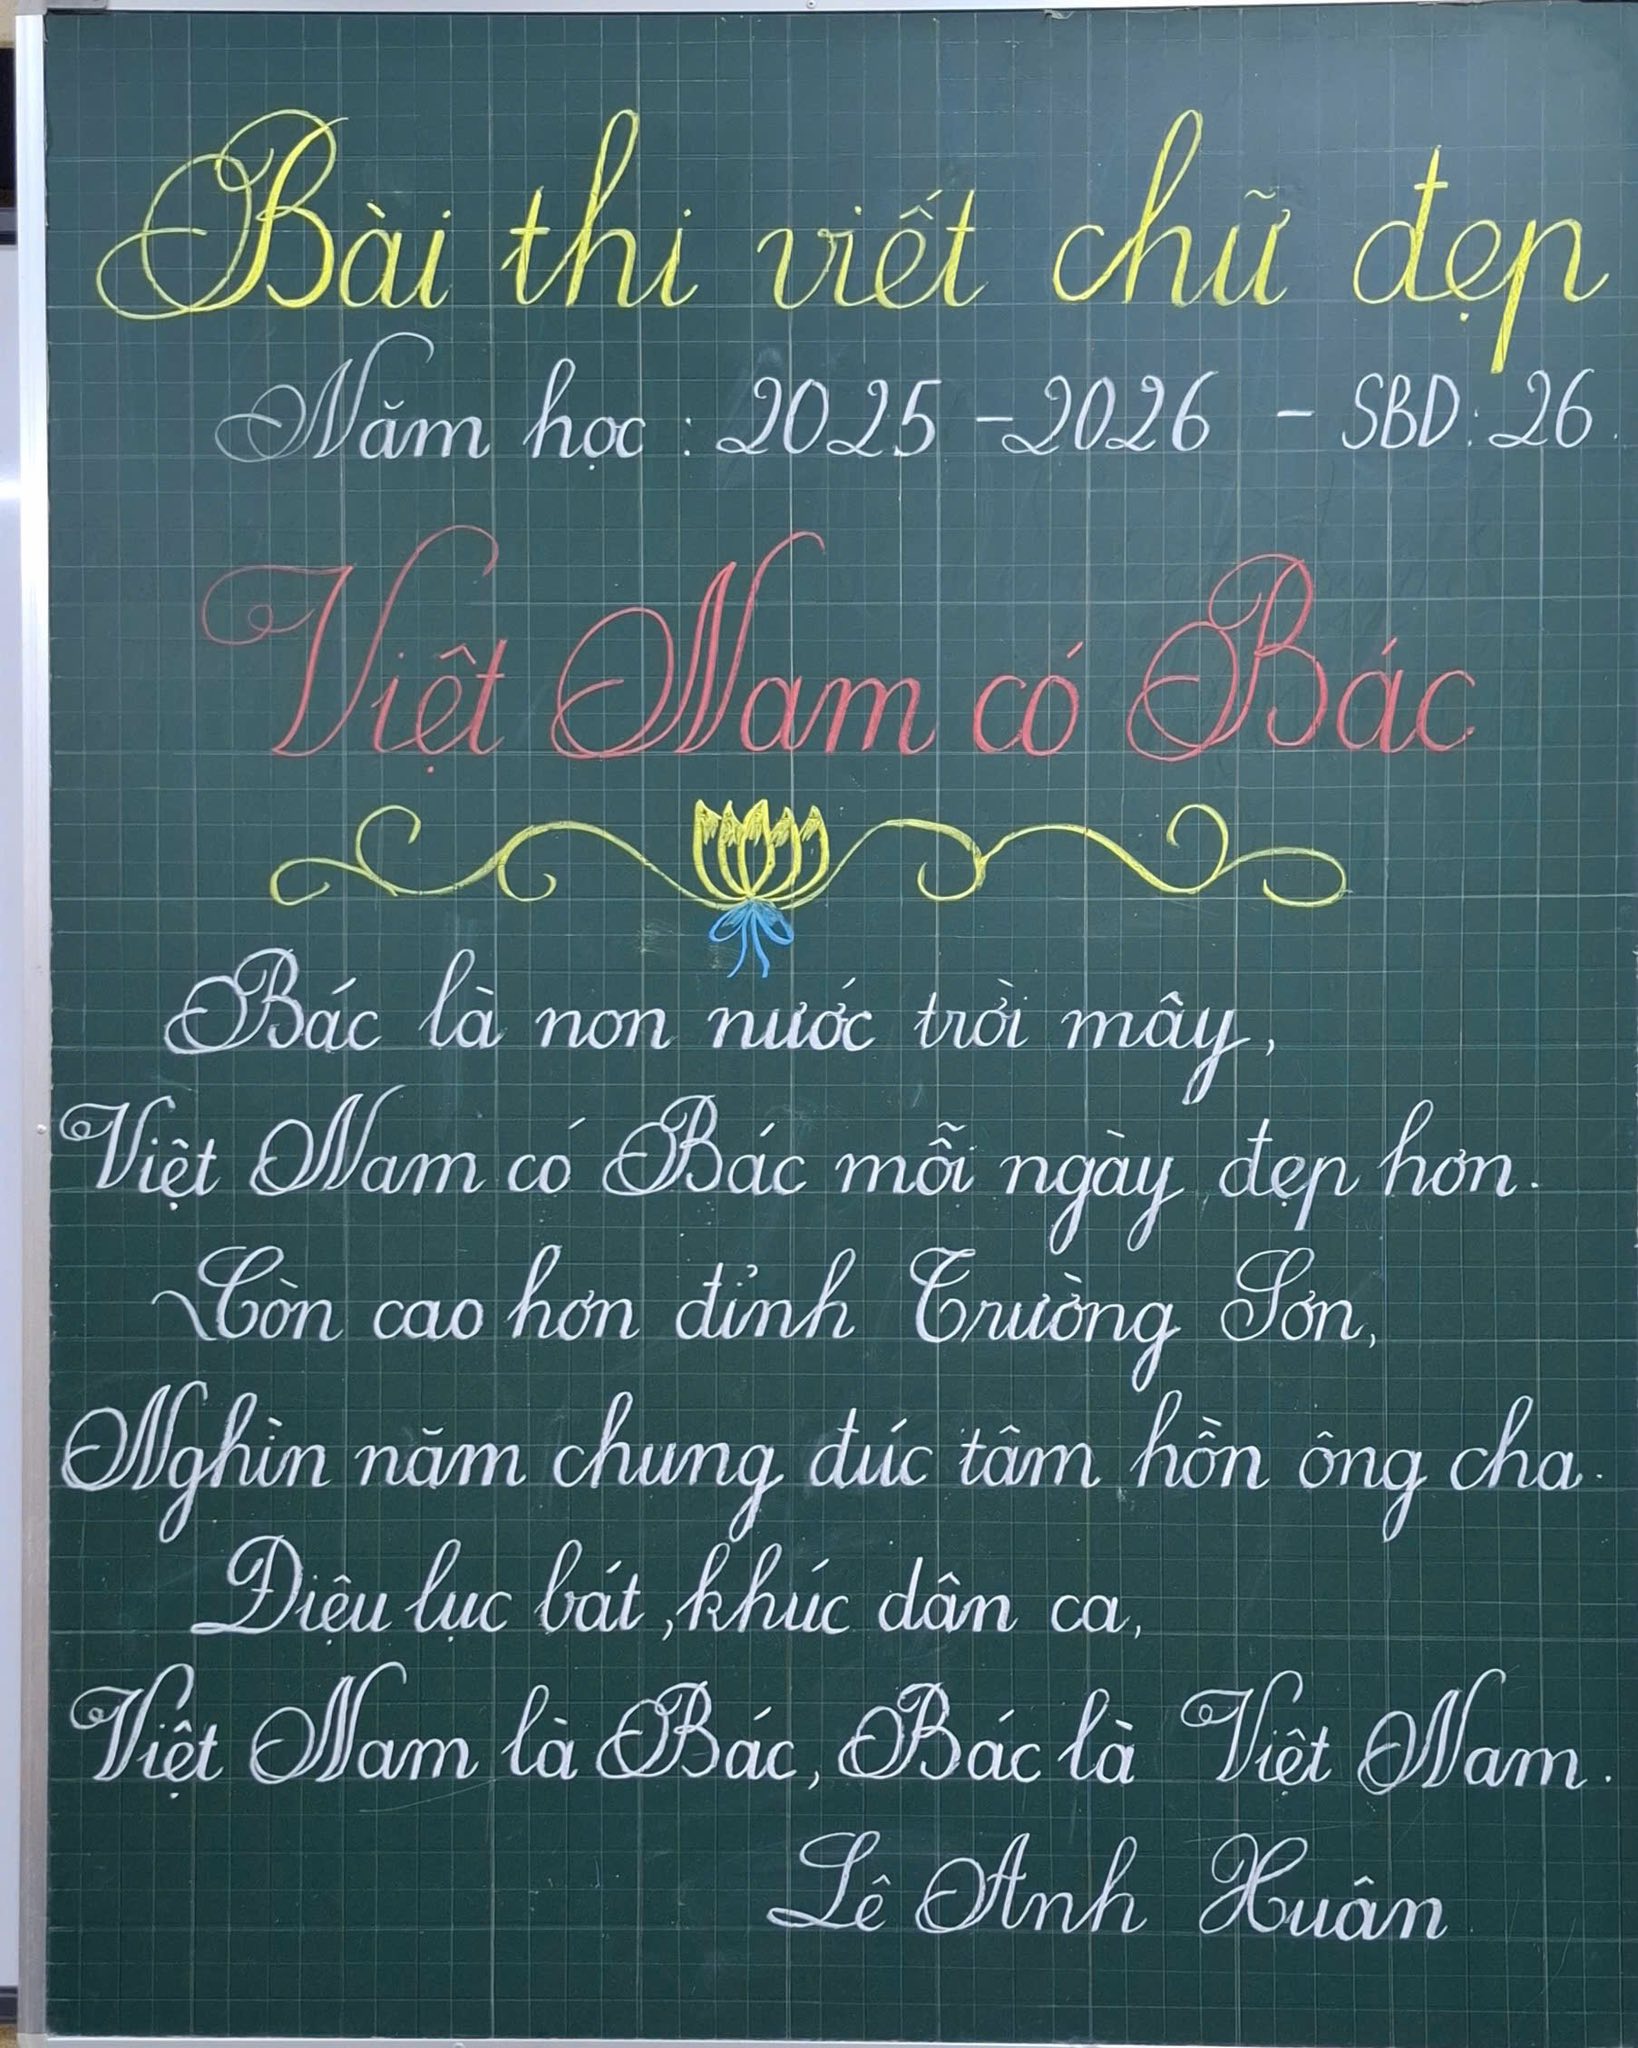 Bài thi viết chữ đẹp
Năm học : 2025 - 2026 - SBD: 26.
Việt Nam có Bác
Bác là non nước trời mây,
Việt Nam có Bác mỗi ngày đẹp hơn.
Còn cao hơn đỉnh Trường Sơn,
Nghìn năm chung đúc tâm hồn ông cha.
Điệu lục bát, khúc dân ca,
Việt Nam là Bác, Bác là Việt Nam.
Lê Anh Xuân